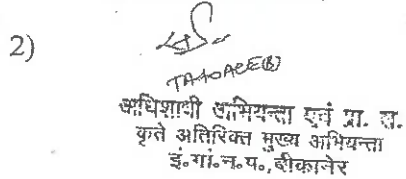 2)
TA to ACE(B)
अधिशाषी अभियन्ता एवं प्रा. स.
कृते अतिरिक्त मुख्य अभियन्ता
इं.गां.न.प.,बीकानेर